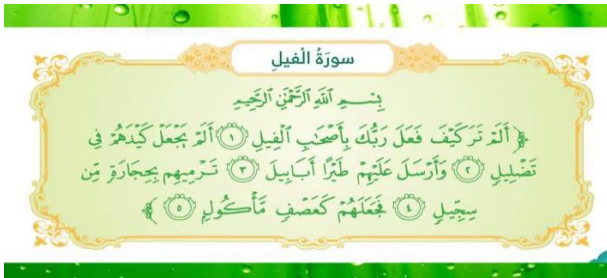 سورَةُ الْفيلِ
بِسْمِ اللَّهِ الرَّحْمَٰنِ الرَّحِيمِ
﴿ أَلَمْ تَرَ كَيْفَ فَعَلَ رَبُّكَ بِأَصْحَٰبِ ٱلْفِيلِ ١ أَلَمْ يَجْعَلْ كَيْدَهُمْ فِى
تَضْلِيلٍ ٢ وَأَرْسَلَ عَلَيْهِمْ طَيْرًا أَبَابِيلَ ٣ تَرْمِيهِم بِحِجَارَةٍ مِّن
سِجِّيلٍ ٤ فَجَعَلَهُمْ كَعَصْفٍ مَّأْكُولٍ ٥ ﴾